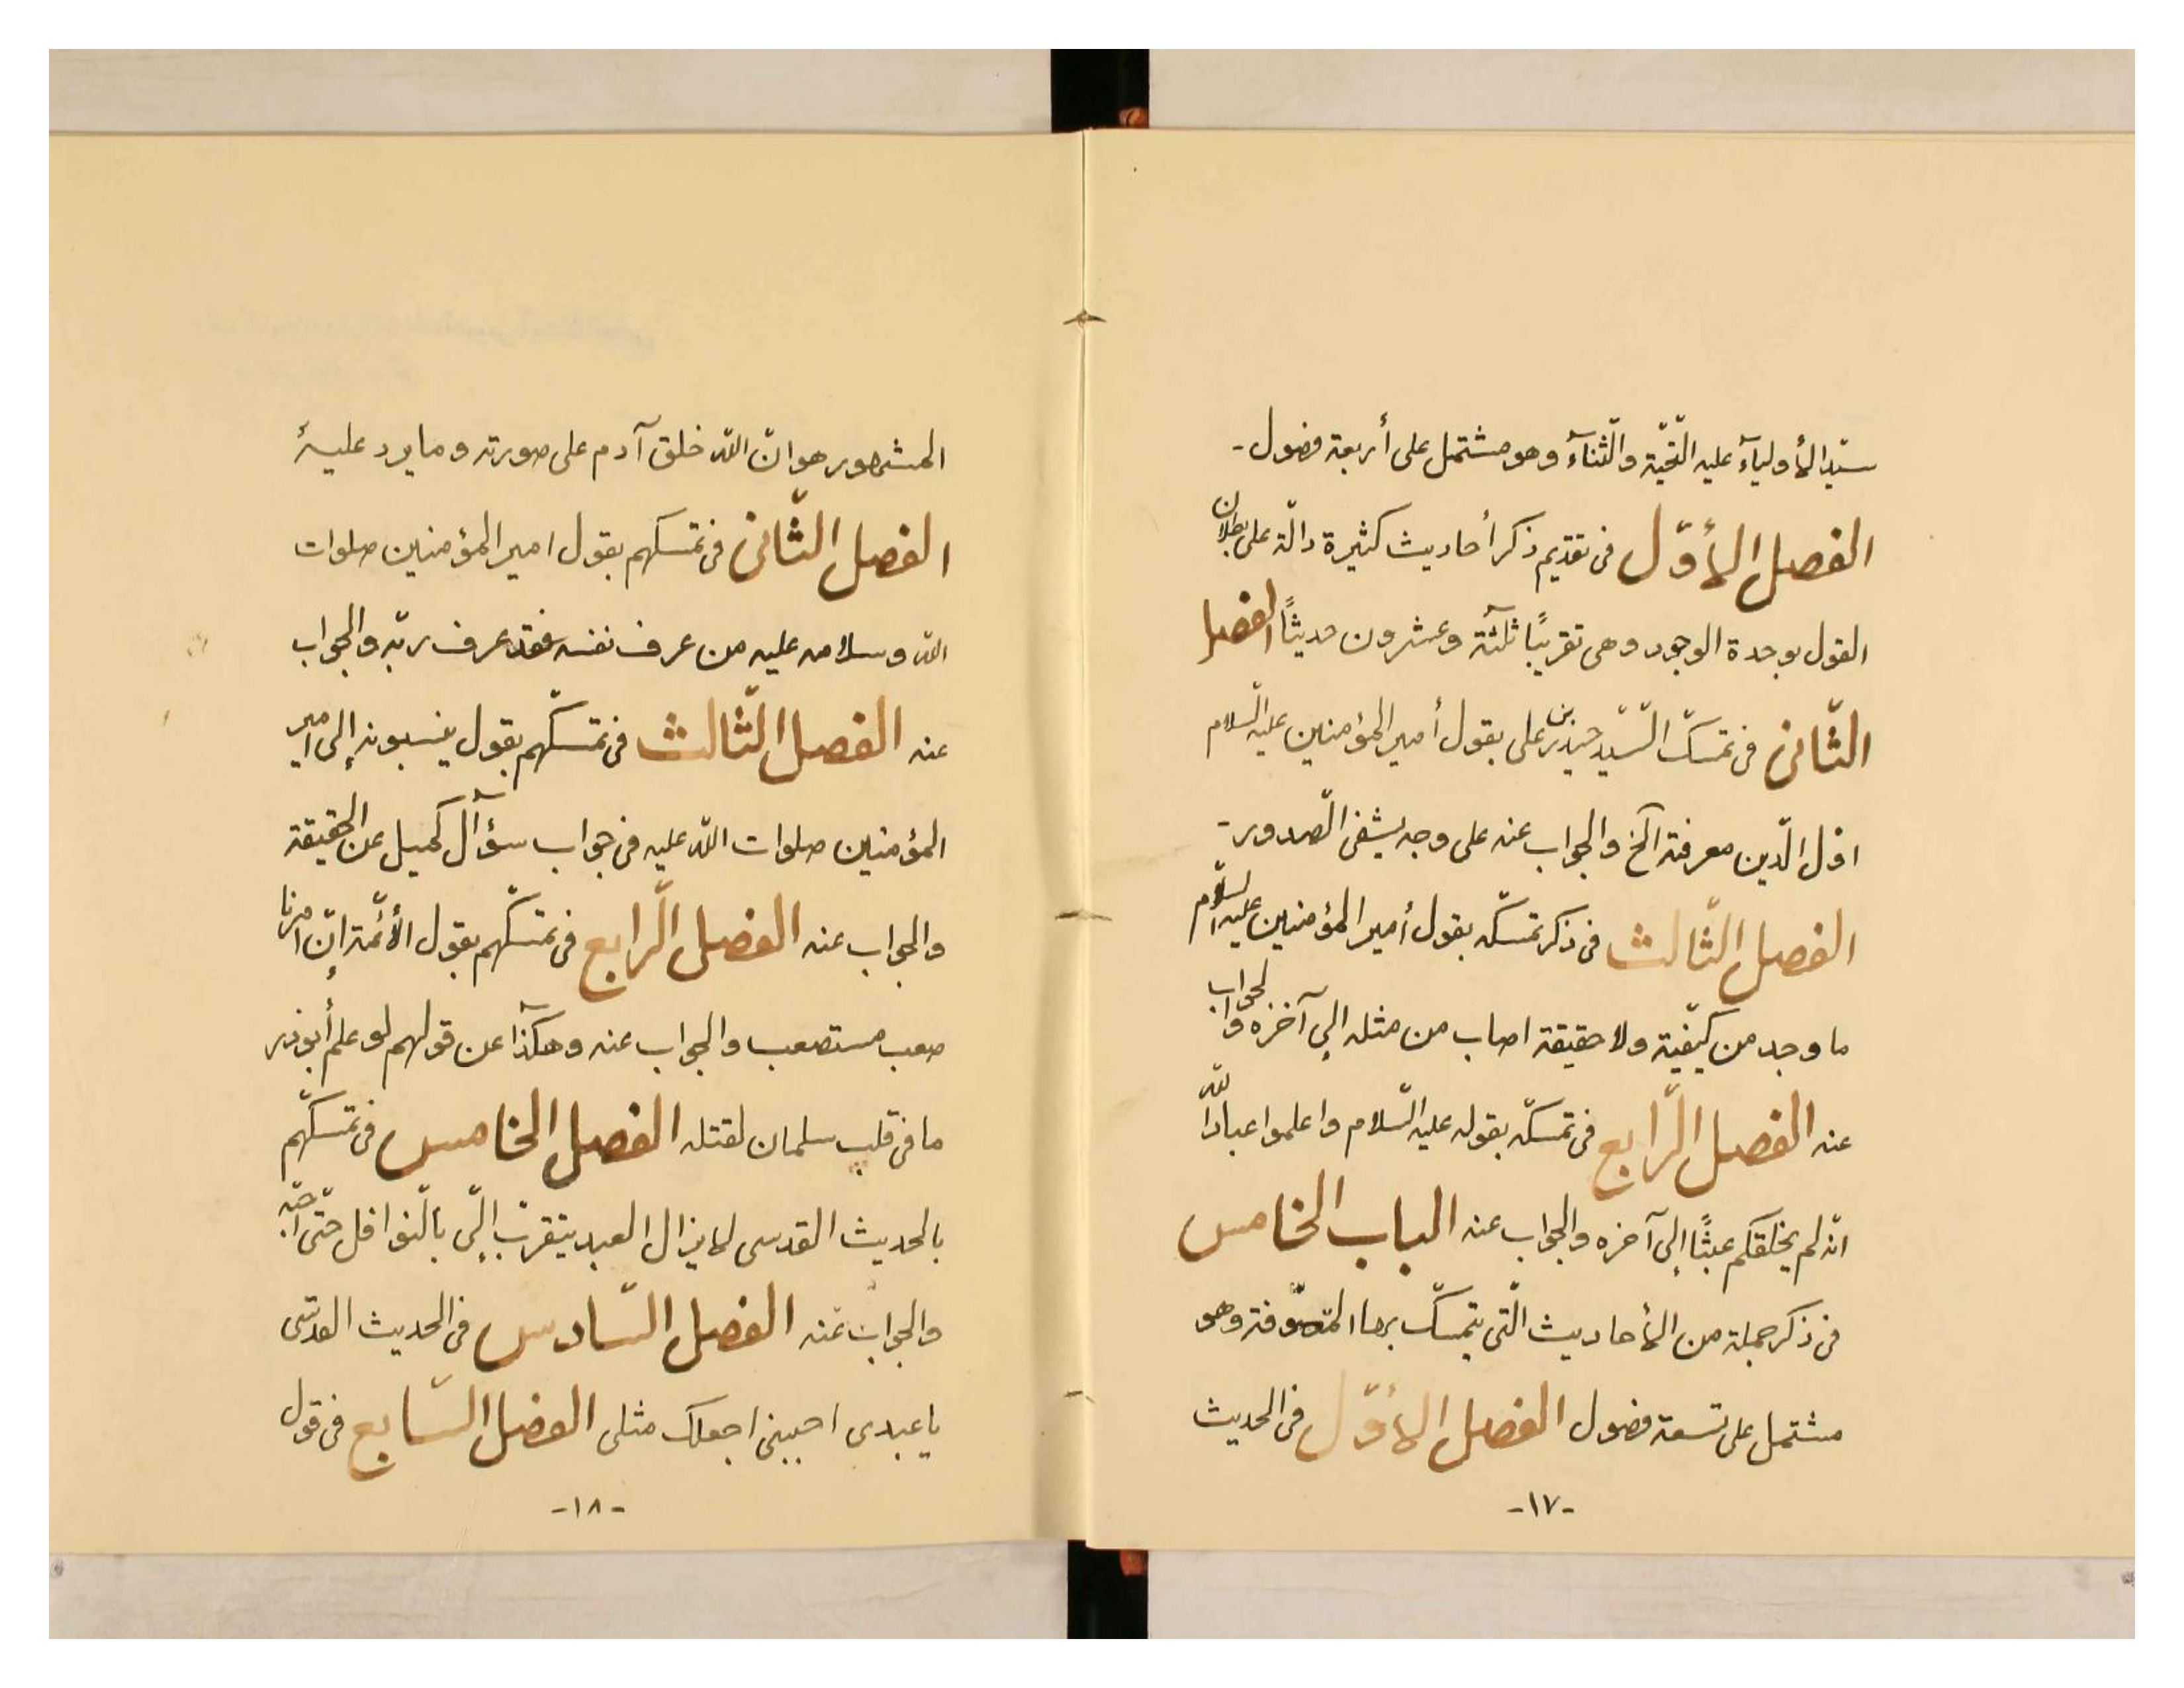 سيّد الأولياء عليه التّحيّة والثّناء وهو مشتمل على أربعة فصول -
الفصل الأوّل فى تقديم ذكر أحاديث كثيرة دالّة على بطلان
القول بوحدة الوجود وهى تقريبًا ثلثة وعشرون حديثًا الفصل
الثّانى فى تمسّك السّيّد حيدر بن على بقول أمير المؤمنين عليه السّلام
اوّل الدّين معرفته الخ والجواب عنه على وجه يشفى الصّدور -
الفصل الثّالث فى ذكر تمسّكه بقول أمير المؤمنين عليه السّلام
ما وحد من كيّفيّة ولا حقيقة اصاب من مثله إلى آخره والجواب
عنه الفصل الرّابع فى تمسّكه بقوله عليه السّلام واعلموا عباد الله
انّه لم يخلقكم عبثًا إلى آخره والجواب عنه الباب الخامس
فى ذكر جملة من الأحاديث الّتى يتمسّك بها المتصوّفة وهو
مشتمل على تسعة فصول الفصل الأوّل فى الحديث
-١٧-
المشهور هو انّ الله خلق آدم على صورته وما يرد عليه
الفصل الثّانى فى تمسّكهم بقول امير المؤمنين صلوات
الله وسلامه عليه من عرف نفسه فقد عرف ربّه والجواب
عنه الفصل الثّالث فى تمسّكهم بقول ينسبونه إلى امير
المؤمنين صلوات الله عليه فى جواب سؤال كميل عن الحقيقة
والجواب عنه الفصل الرّابع فى تمسّكهم بقول الأئمّة إنّ امرنا
صعب مستصعب والجواب عنه وهكذا عن قولهم لو علم أبوذر
ما فى قلب سلمان لقتله الفصل الخامس فى تمسّكهم
بالحديث القدسى لا يزال العبد يتقرّب إلىّ بالنّوافل حتّى احبّه
والجواب عنه الفصل السّادس فى الحديث القدسى
يا عبدى احببنى اجعلك مثلى الفصل السّابع فى قول
-١٨-